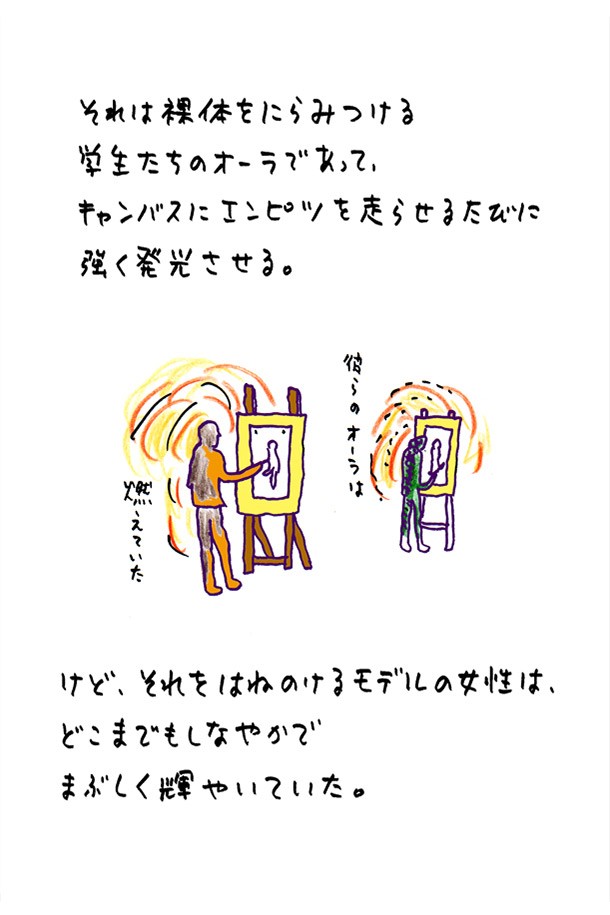 それは裸体をにらみつける
学生たちのオーラであって、
キャンバスにエンピツを走らせるたびに
強く発光させる。
彼らのオーラは
燃えていた
けど、それをはねのけるモデルの女性は、
どこまでもしなやかで
まぶしく輝やいていた。